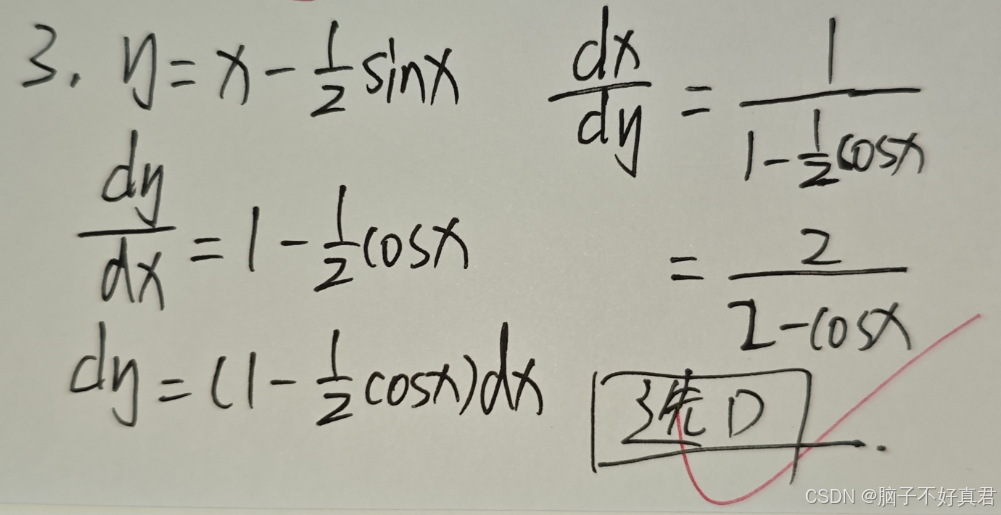 3. y = x - 1/2 sinx
dy/dx = 1 - 1/2 cosx
dy = (1 - 1/2 cosx)dx
dx/dy = 1/(1 - 1/2 cosx)
= 2/(2 - cosx)
选 D
CSDN @脑子不好真君